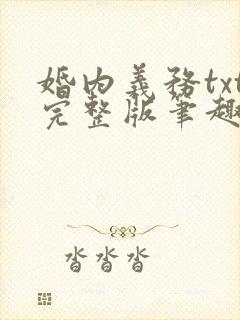 婚內義務txt
完整版筆趣
沓沓沓